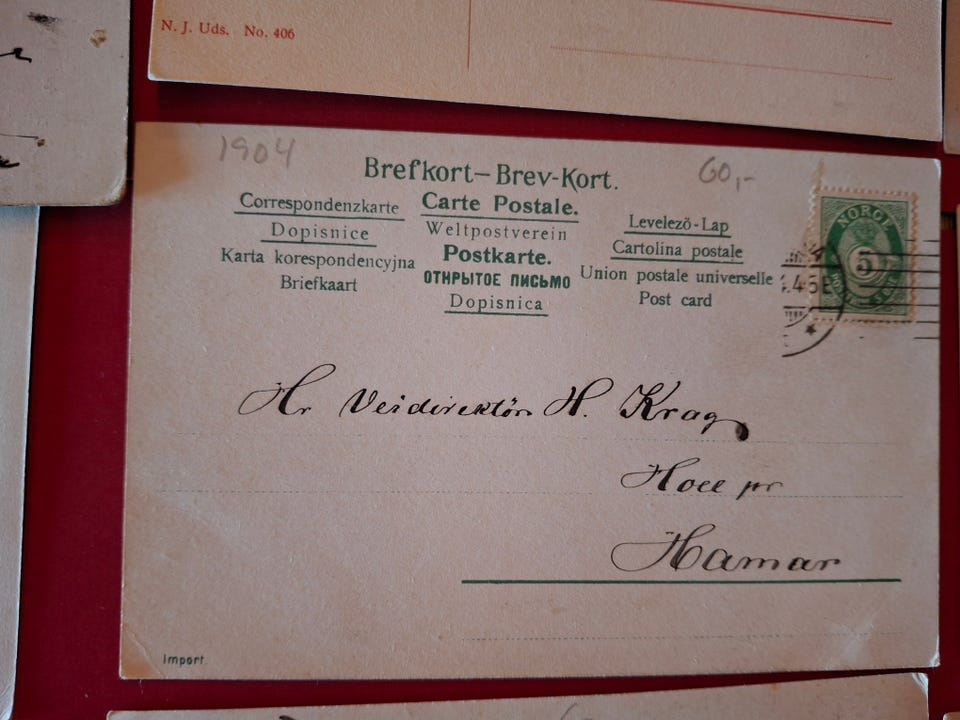 N. J. Uds. No. 406
1904
60,-
Brefkort— Brev-Kort.
Correspondenzkarte
Dopisnice
Karta korespondencyjna
Briefkaart
Carte Postale.
Weltpostverein
Postkarte.
ОТКРЫТОЕ ПИСЬМО
Dopisnica
Levelező-Lap
Cartolina postale
Union postale universelle
Post card
NORGE
5
Hr Veidirektör H. Krag
pr
Hamar
Import.